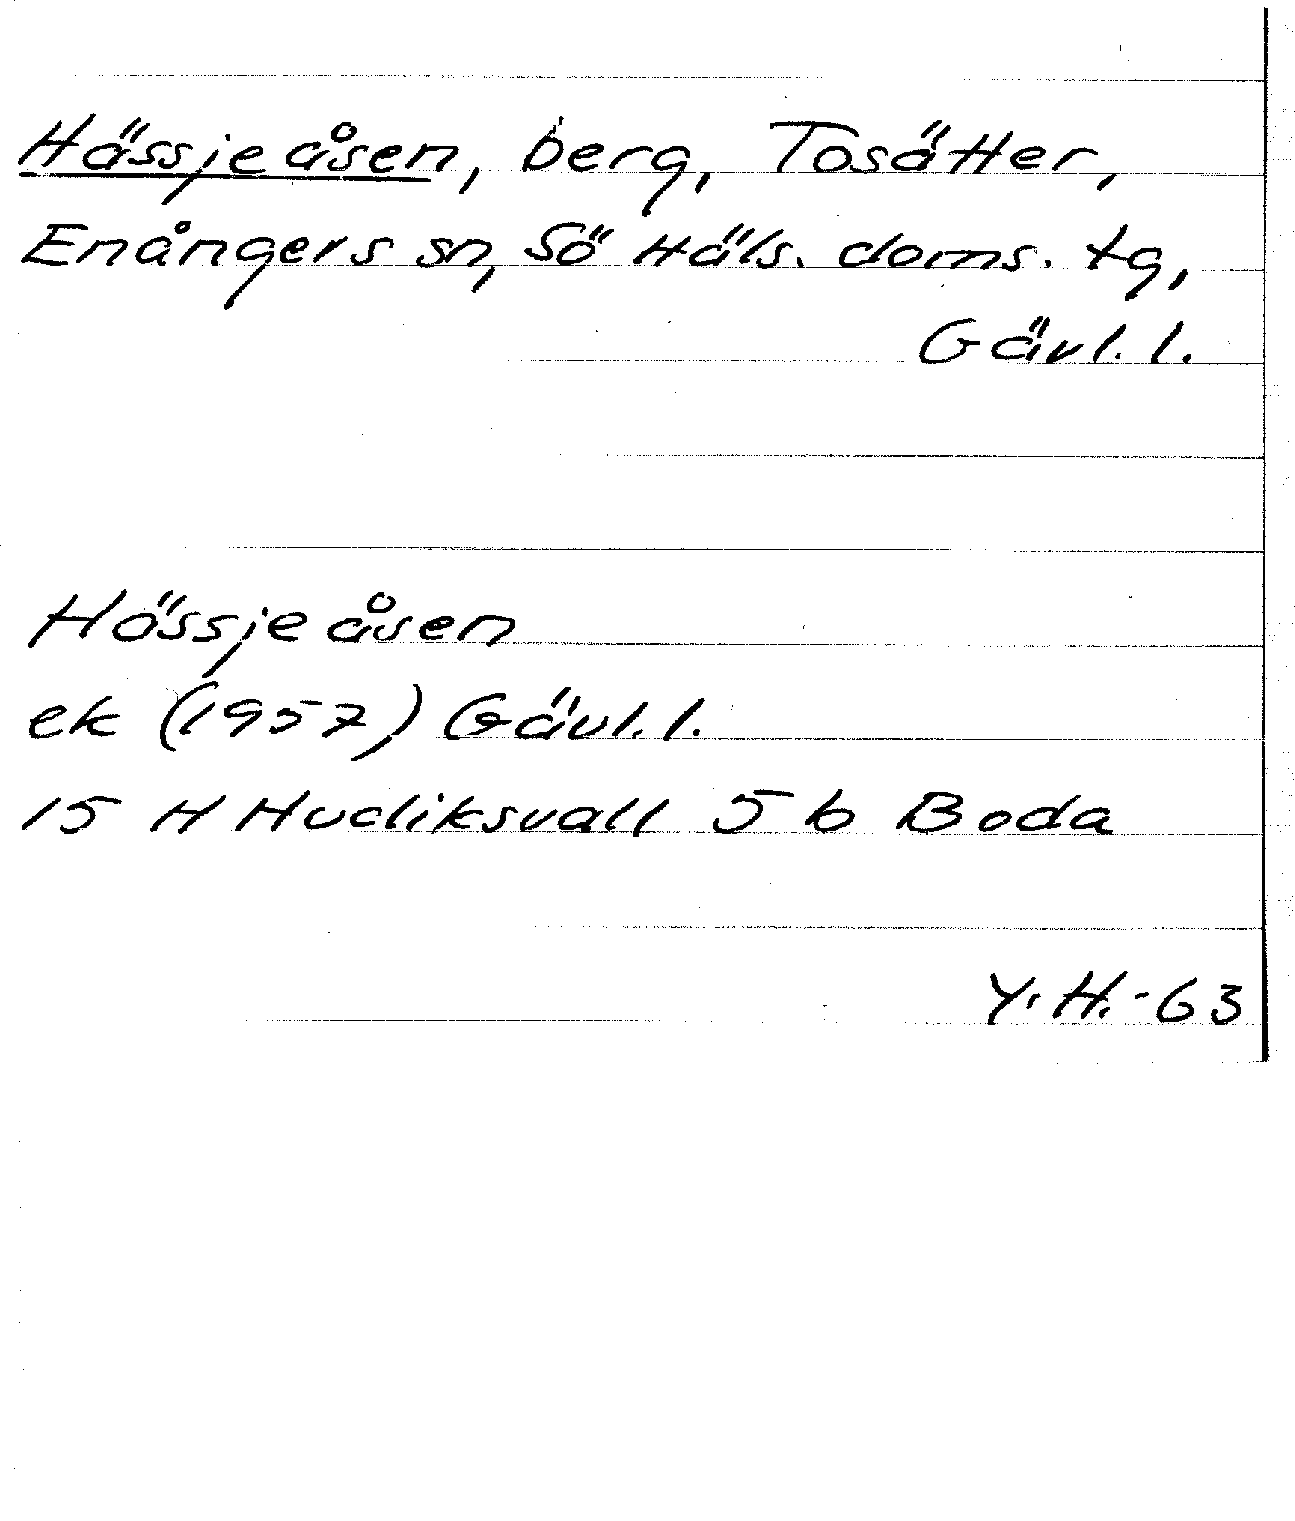 Hässjeåsen, berg, Tosätter,
Enångers sn, Sö Häls. doms. tg,
Gävl. l.
Hössjeåsen
ek (1957) Gävl. l.
15 H Hudiksvall 5 b Boda
Y. H. - 63